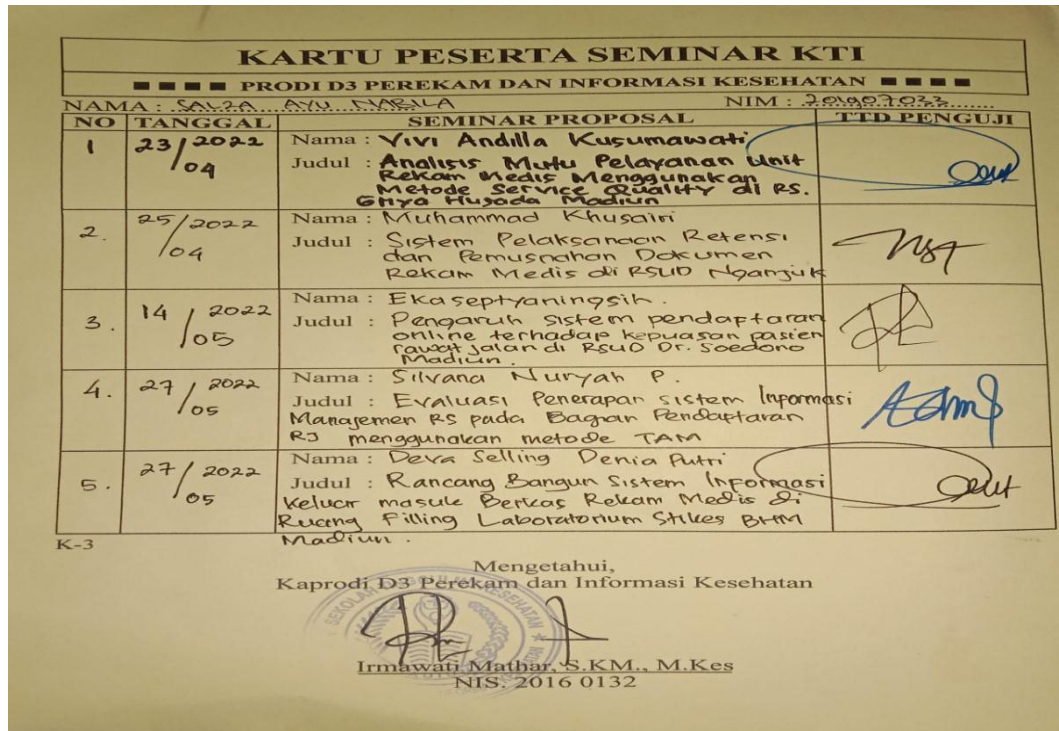 KARTU PESERTA SEMINAR KTI
PRODI D3 PEREKAM DAN INFORMASI KESEHATAN
NAMA : SALZA AYU NABILA NIM : 201907033
NO TANGGAL SEMINAR PROPOSAL TTD PENGUJI
1 23/2022 Nama : Vivi Andilla Kusumawati
04 Judul : Analisis Mutu Pelayanan Unit
Rekam Medis Menggunakan
Metode Service Quality di RS.
Griya Husada Madiun
2. 25/2022 Nama : Muhammad Khusairi
/04 Judul : Sistem Pelaksanaan Retensi
dan Pemusnahan Dokumen
Rekam Medis di RSUD Nganjuk
3. 14 / 2022 Nama : Eka septyaningsih.
05 Judul : Pengaruh sistem pendaftaran
online terhadap kepuasan pasien
rawat jalan di RSUD Dr. Soedono
Madiun.
4. 27 / 2022 Nama : Silvana Nuryah P.
05 Judul : Evaluasi Penerapan sistem Informasi
Manajemen RS pada Bagian Pendaftaran
RJ menggunakan metode TAM
5. 27 / 2022 Nama : Deva Selling Denia Putri
05 Judul : Rancang Bangun Sistem Informasi
keluar masuk Berkas Rekam Medis di
Ruang Filling Laboratorium Stikes BHM
Madiun.
K-3
Mengetahui,
Kaprodi D3 Perekam dan Informasi Kesehatan
Irmawati Mathar, S.KM., M.Kes
NIS. 2016 0132